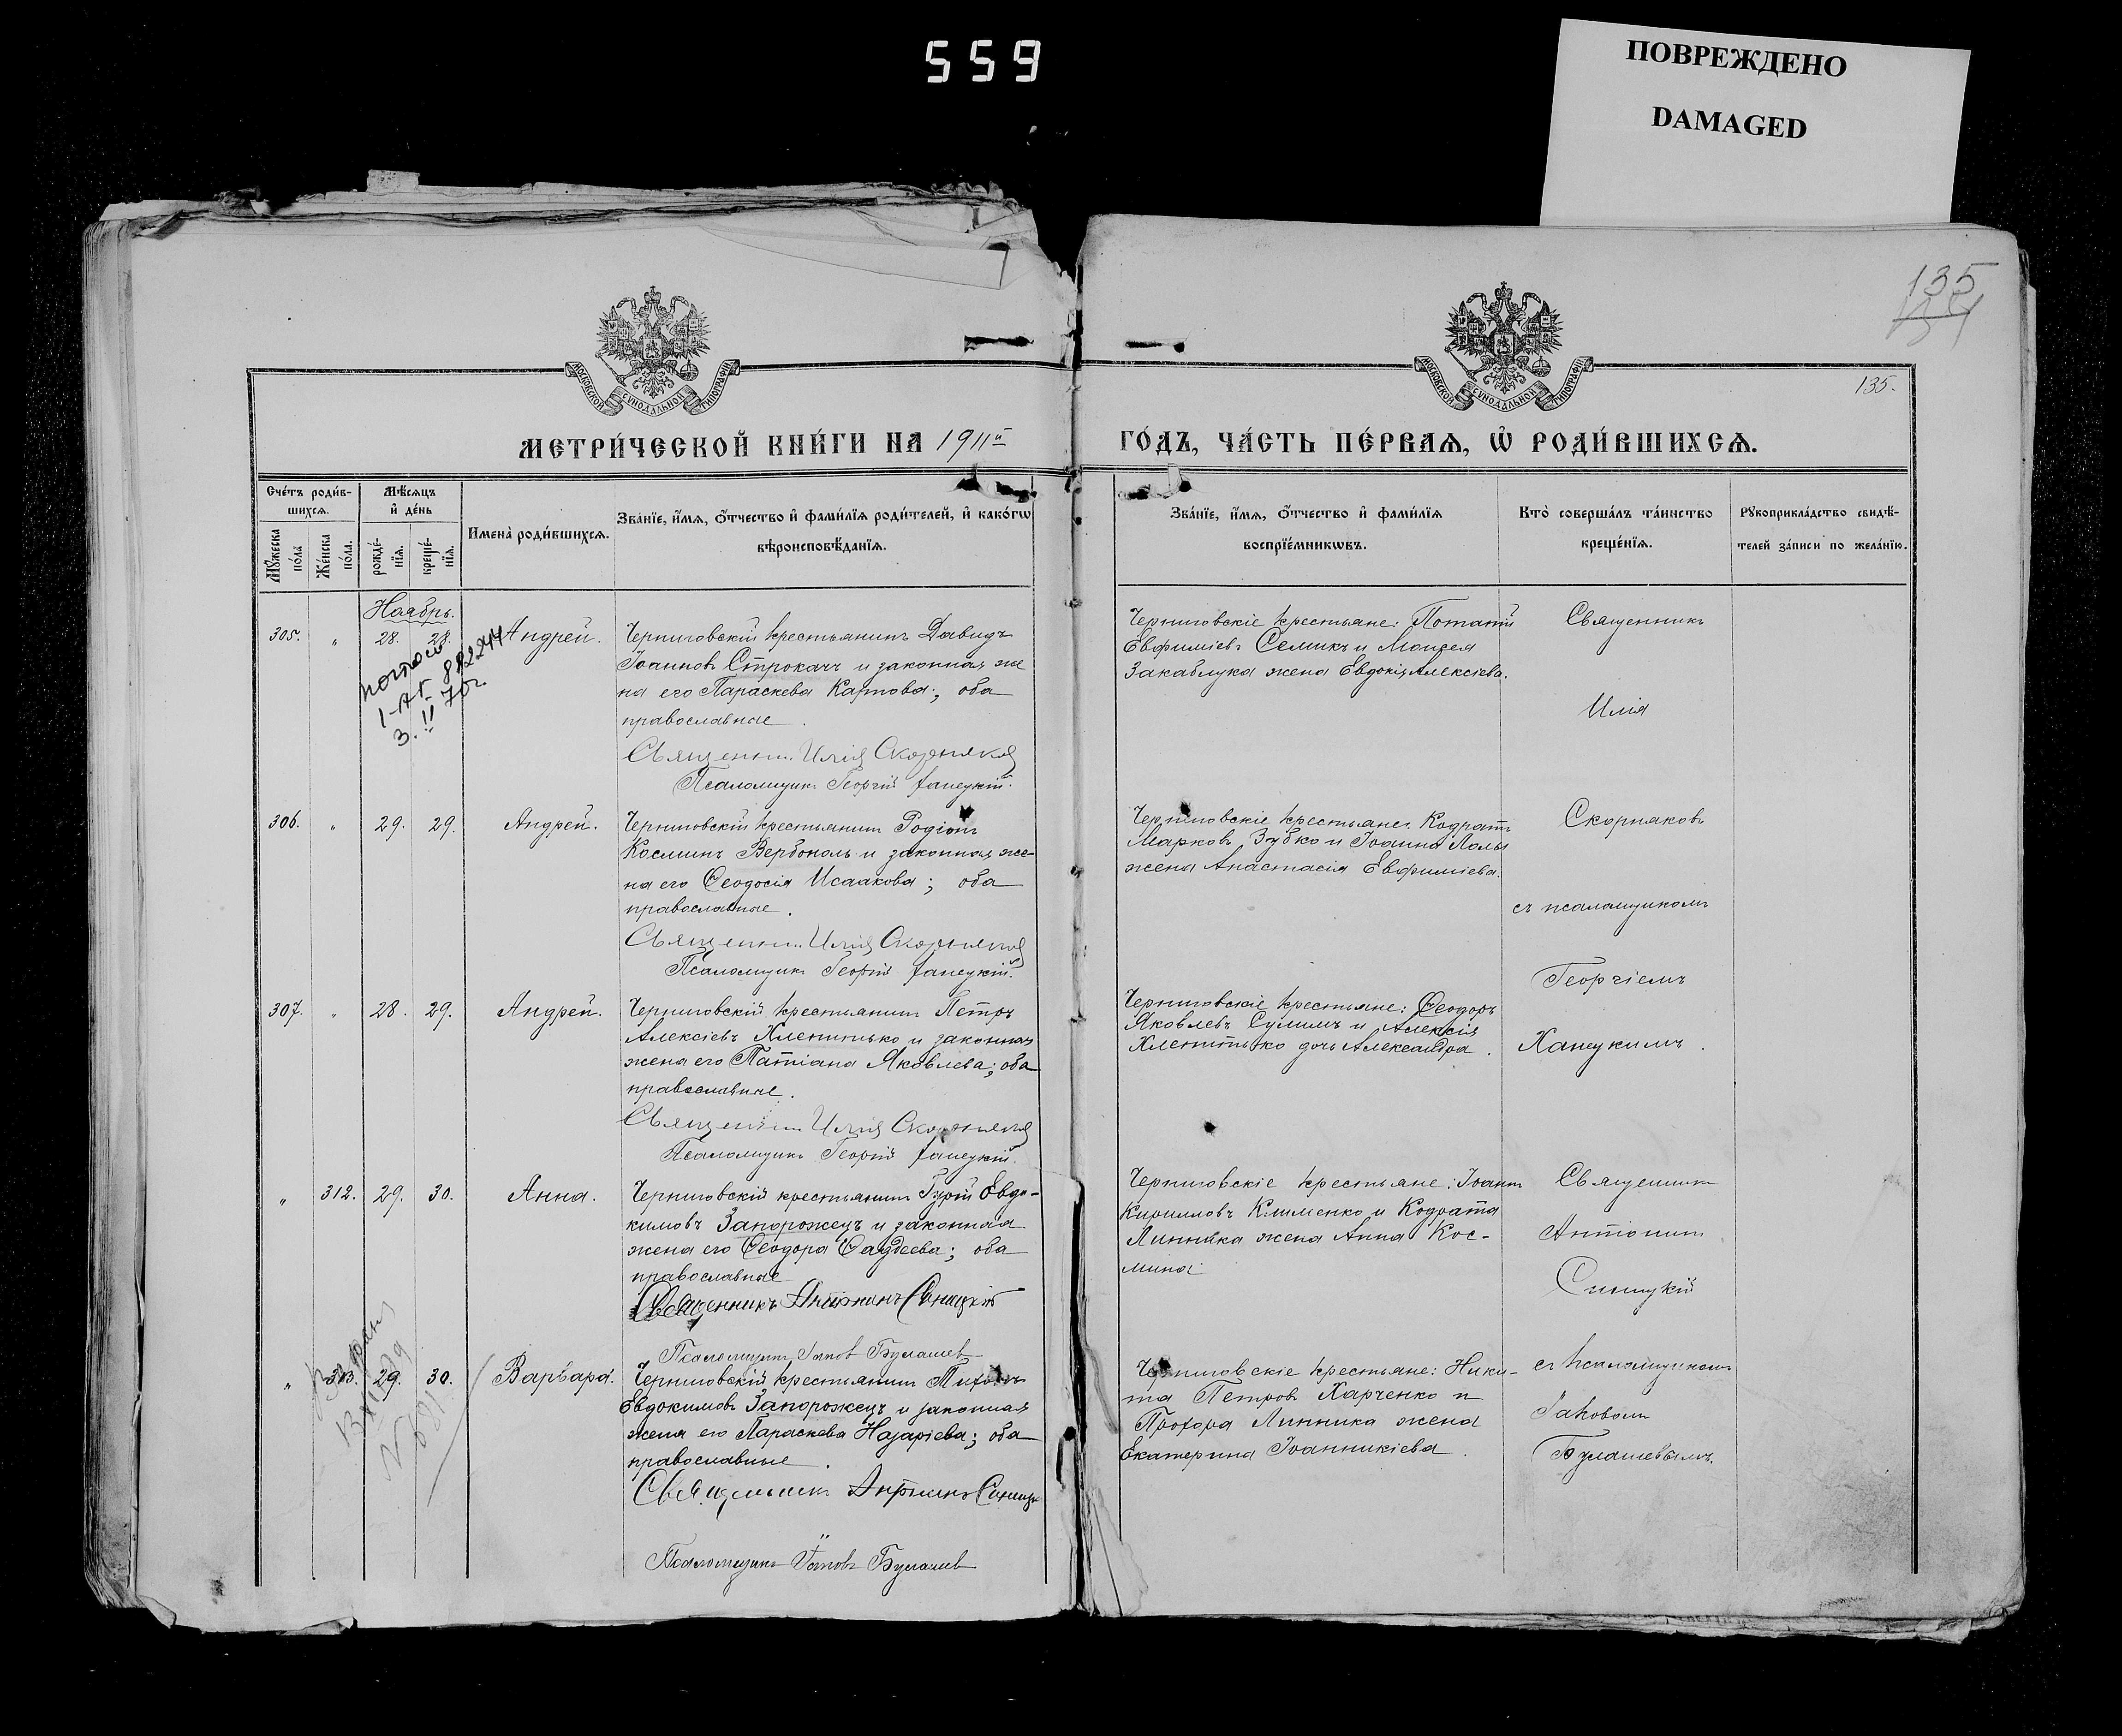 559
ПОВРЕЖДЕНО
DAMAGED
135
135.
МОСКОВСКОЙ СѴНОДАЛЬНОЙ ТИПОГРАФІИ
МОСКОВСКОЙ СѴНОДАЛЬНОЙ ТИПОГРАФІИ
МЕТРИ́ЧЕСКОЙ КНИ́ГИ НА 1911й
ГО́ДЪ, ЧА́СТЬ ПЕ́РВАѦ, Ѡ҆ РОДИ́ВШИХСѦ.
Сче́тъ роди́в-
шихсѧ.
Мꙋ́жеска
по́ла
Же́нска
по́ла.
Мѣ́сѧцъ
и҆ де́нь
рожде́-
нїѧ.
креще́-
нїѧ.
Имена̀ роди́вшихсѧ.
Зва́нїе, и҆́мѧ, ѻ҆́тчество и҆ фами́лїѧ роди́телей, и҆ како́гѡ
вѣроисповѣ́данїѧ.
Зва́нїе, и҆́мѧ, ѻ҆́тчество и҆ фами́лїѧ
воспрїе́мникѡвъ.
Кто̀ соверша́лъ та́инство
креще́нїѧ.
Рꙋкоприкла́дство свидѣ́-
телей за́писи по жела́нїю.
Ноябрь.
305. „ 28. 28. Андрей.
Черниговскій крестьянинъ Давидъ
Іоанновъ Строкачъ и законная же
на его Параскева Карпова; оба
православные.
Священн. Илія Скорняков
Псаломщикъ Георгій Ханецкій.
Черниговскіе крестьяне: Потапій
Евфиміевъ Семикъ и Моисея
Закаблука жена Евдокія Алексіева.
Священникъ
Илія
306. „ 29. 29. Андрей.
Черниговскій крестьянинъ Родіонъ
Косминъ Вербополь и законная же-
на его Ѳеодосія Исаакова; оба
православные.
Священн. Илія Скорняков
Псаломщикъ Георгій Ханецкій.
Черниговскіе крестьяне: Кодратъ
Марковъ Зубко и Іоанна
жена Анастасія Евфиміева.
Скорняковъ
съ псаломщикомъ
Георгіемъ
307. „ 28. 29. Андрей.
Черниговскій крестьянинъ Петръ
Алексіевъ Хлепитько и законная
жена его Татіана Яковлева; оба
православные.
Священн. Илія Скорняков
Псаломщикъ Георгій Ханецкій
Черниговскіе крестьяне: Ѳеодоръ
Яковлевъ Сулимъ и Алексія
Хлепитько дочь Александра.
Ханецкимъ.
„ 312. 29. 30. Анна.
Черниговскій крестьянинъ Гурій Евдо-
кимовъ Запорожецъ и законная
жена его Ѳеодора Ѳаддеева; оба
православные
Священникъ Антонинъ Синицкій
Псаломщикъ Іаковъ Булашев
Черниговскіе крестьяне: Іоаннъ
Кирилловъ Клименко и Кодрата
Линника жена Анна Кос-
мина
Священникъ
Антонинъ
Синицкій
„ 313. 29. 30. Варвара.
Черниговскій крестьянинъ Тихонъ
Евдокимовъ Запорожецъ и законная
жена его Параскева Назаріева; оба
православные.
Священникъ Антонинъ Синицк
Псаломщикъ Іаковъ Булашев
Черниговскіе крестьяне: Ники-
та Петровъ Харченко и
Прохора Линника жена
Екатерина Іоанникіева.
съ псаломщикомъ
Іаковомъ
Булашевымъ.